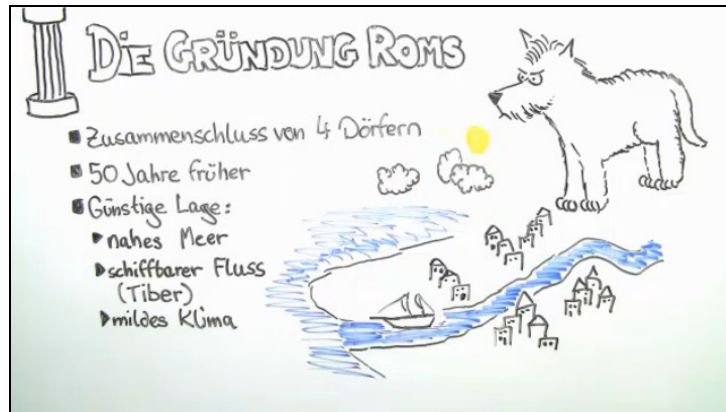 DIE GRÜNDUNG ROMS
Zusammenschluss von 4 Dörfern
50 Jahre früher
Günstige Lage:
nahes Meer
schiffbarer Fluss
(Tiber)
mildes Klima